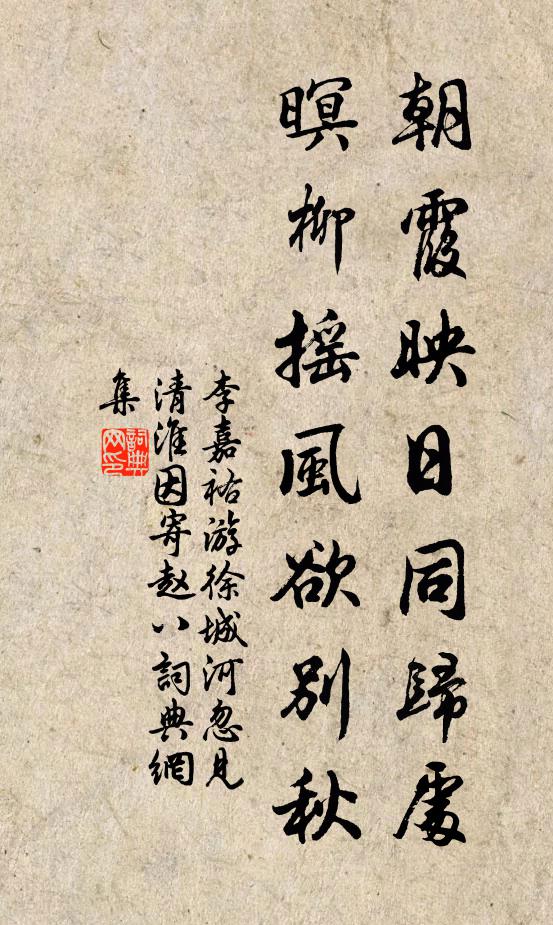 朝霞映日同歸處
暝柳搖風欲別秋
李嘉祐游徐城河忽見
清淮因寄赵八詞典網
集
詞典網印